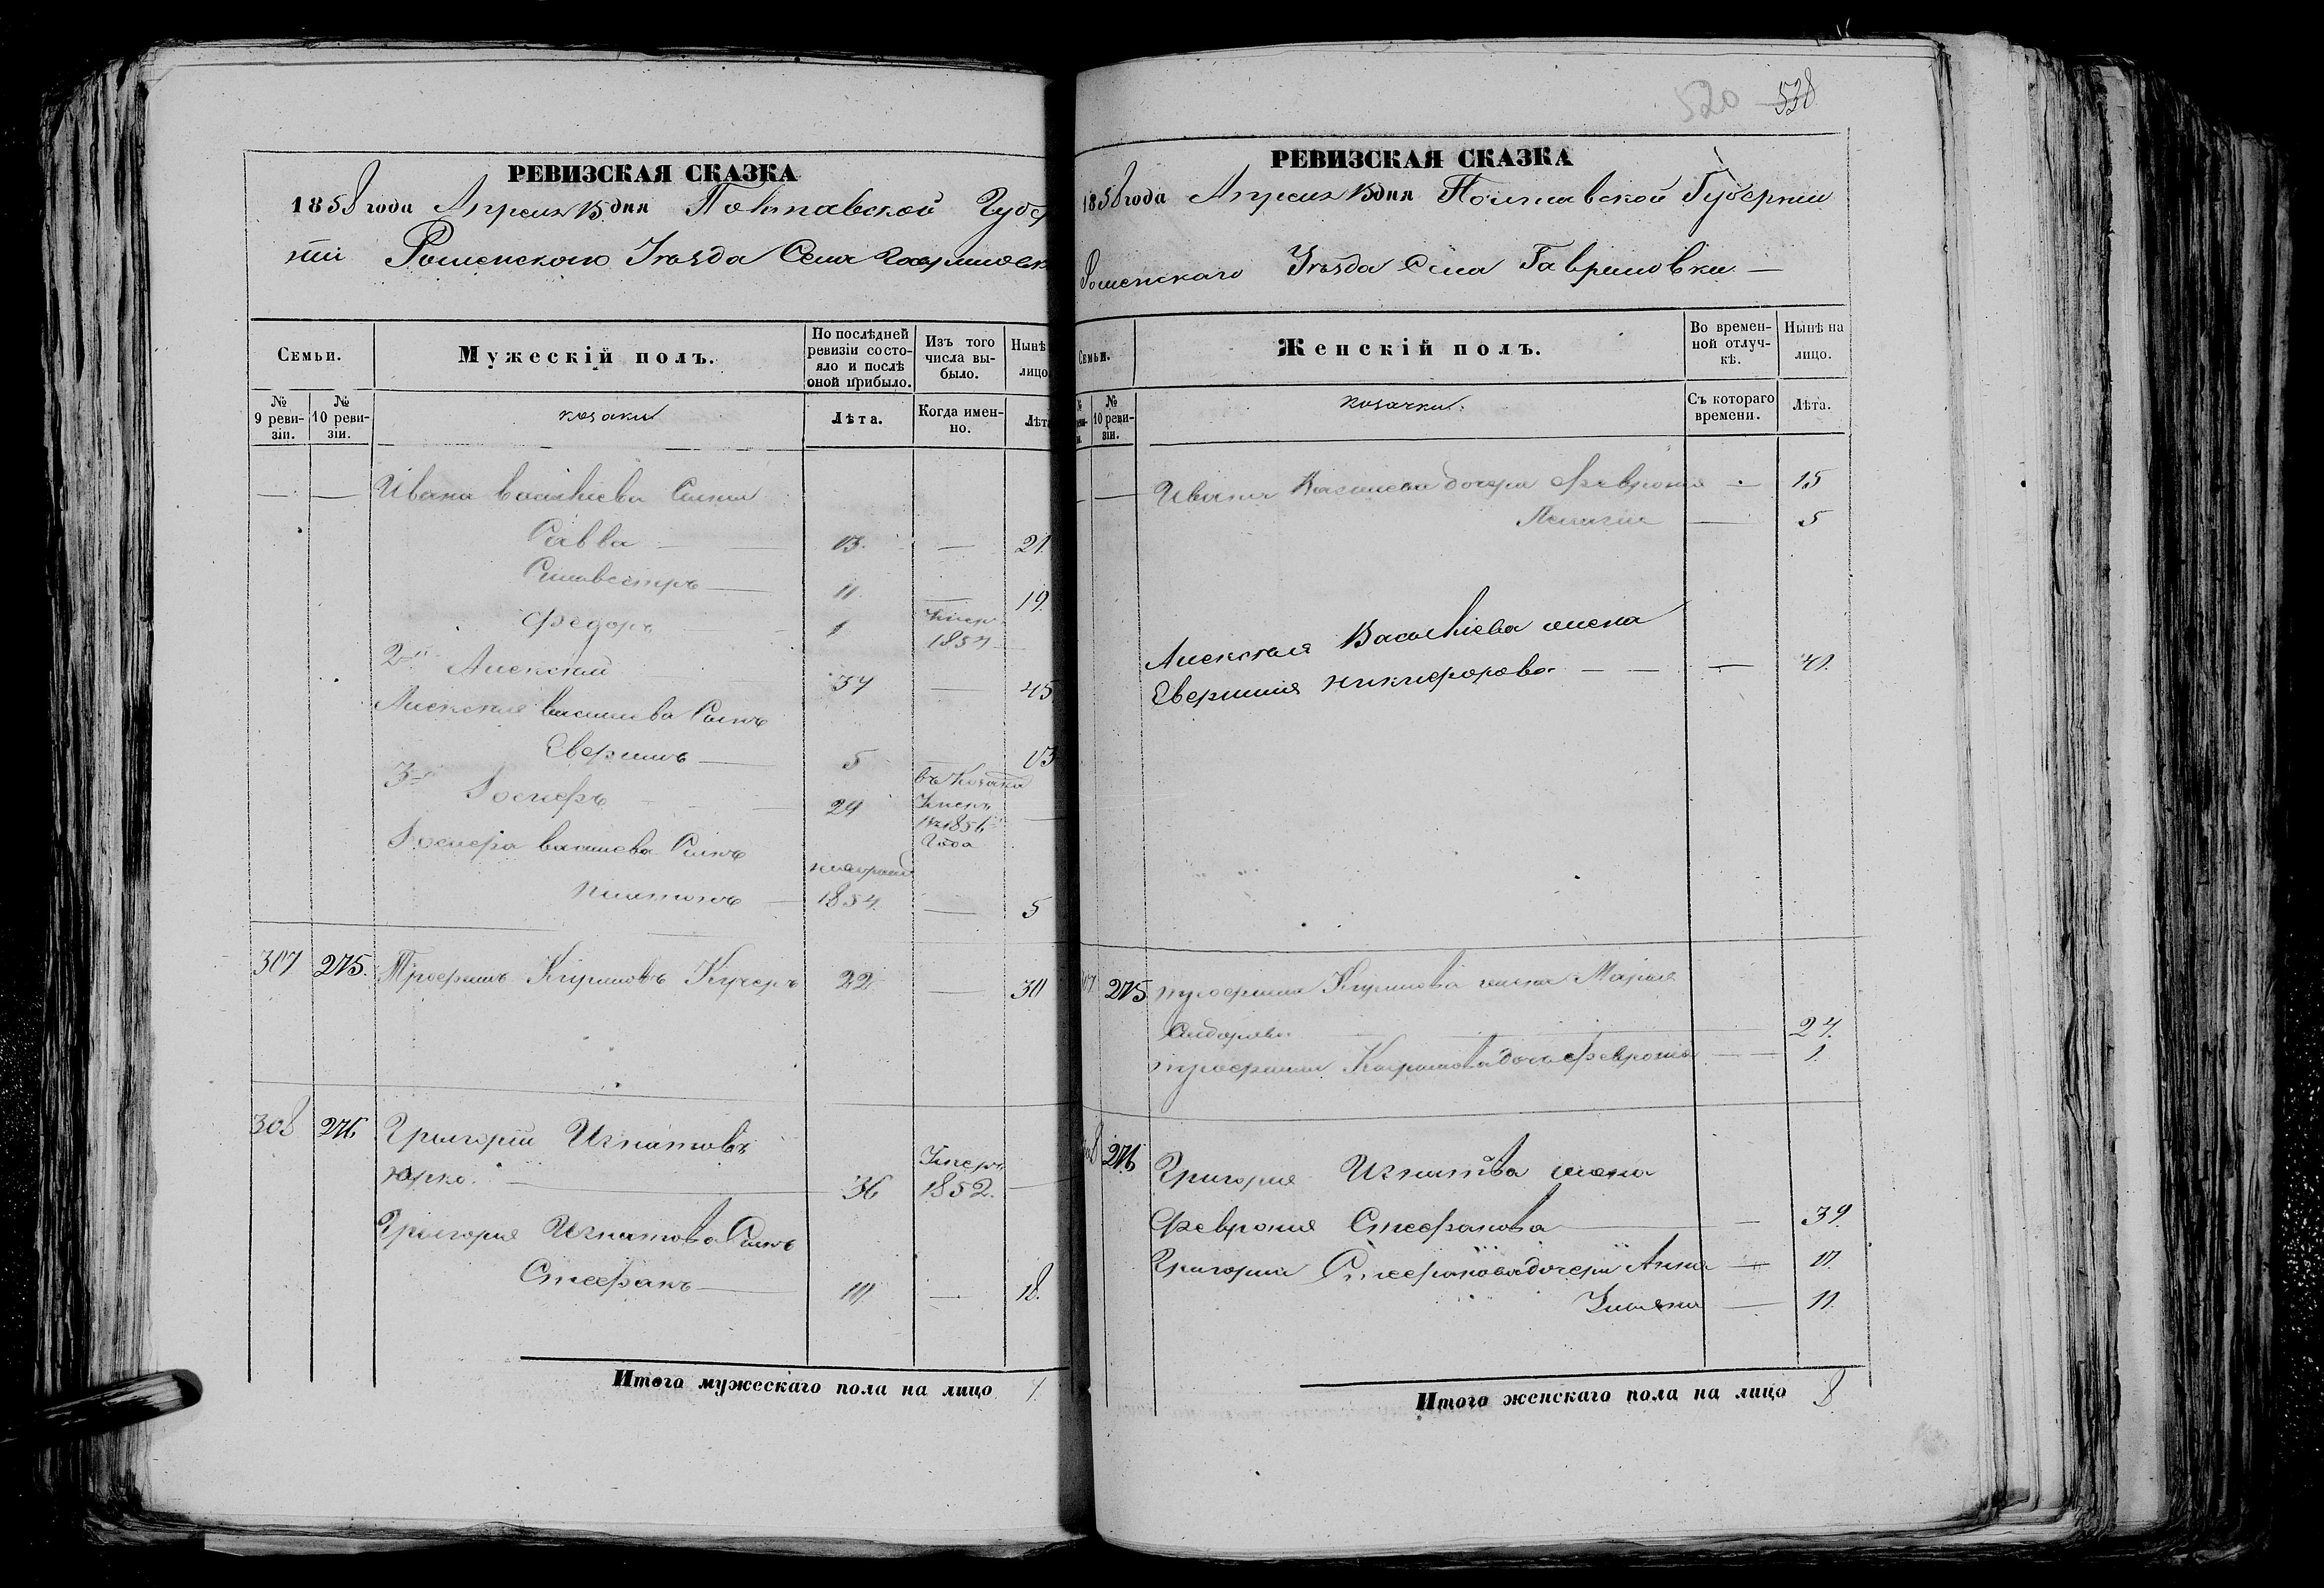 РЕВИЗСКАЯ СКАЗКА
1858 года Апреля 15 дня Полтавской Губер
нии Роменского Уезда Села Гавриловк
Семьи.
Мужескій полъ.
По послѣдней ревизіи состояло и послѣ оной прибыло.
Изъ того числа выбыло.
Нынѣ
лицо
№ 9 ревизіи.
№ 10 ревизіи.
козаки
Лѣта.
Когда именно.
Лѣт
— — Ивана Васильева Сыны
Савва — 13. — 21.
Сильвестръ — 11. — 19.
Федоръ 1 Умеръ 1854 —
2й Алексей 37 — 45.
Алексея Васильева Сынъ
Евфимъ — 5 13
3й 29 Умеръ 1856 Года —
Васильева Сынъ
Платонъ — 1854. — 5
307 275. Трофимъ Кириловъ Кучеръ 22 — 30
308 276 Григорій Игнатовъ
Юрко. — 36 Умеръ 1852. —
Григорія Игнатова Сынъ
Стефанъ — 10. — 18.
Итого мужескаго пола на лицо 7.
520 538
РЕВИЗСКАЯ СКАЗКА
1858 года Апреля 15 дня Полтавской Губернии
Роменскаго Уезда Села Гавриловки —
Семьи.
Женскій полъ.
Во временной отлучкѣ.
Нынѣ на лицо.
№ 10 ревизіи.
козачки.
Съ котораго времени.
Лѣта.
— Ивана Васильева дочери Феврония — 15
Пелагия — 5
Алексея Васильева жена
Евфимия Никифорова — — — 40.
275 Трофима Кирилова жена Мария
Сидорова — 27.
Трофима Кирилова дочь Феврония — 1.
276 Григория Игнатова жена
Феврония Стефанова — — 39.
Григория Стефанова дочери Анна — 17.
Ульяна — 11.
Итого женскаго пола на лицо 8